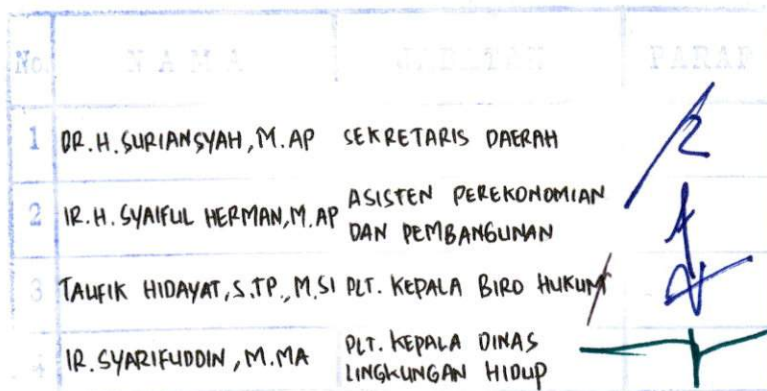 No. NAMA JABATAN PARAF
1 DR. H. SURIANSYAH, M. AP SEKRETARIS DAERAH
2 IR. H. SYAIFUL HERMAN, M. AP ASISTEN PEREKONOMIAN
DAN PEMBANGUNAN
3 TAUFIK HIDAYAT, S.TP., M.SI PLT. KEPALA BIRO HUKUM
4 IR. SYARIFUDDIN, M.MA PLT. KEPALA DINAS
LINGKUNGAN HIDUP